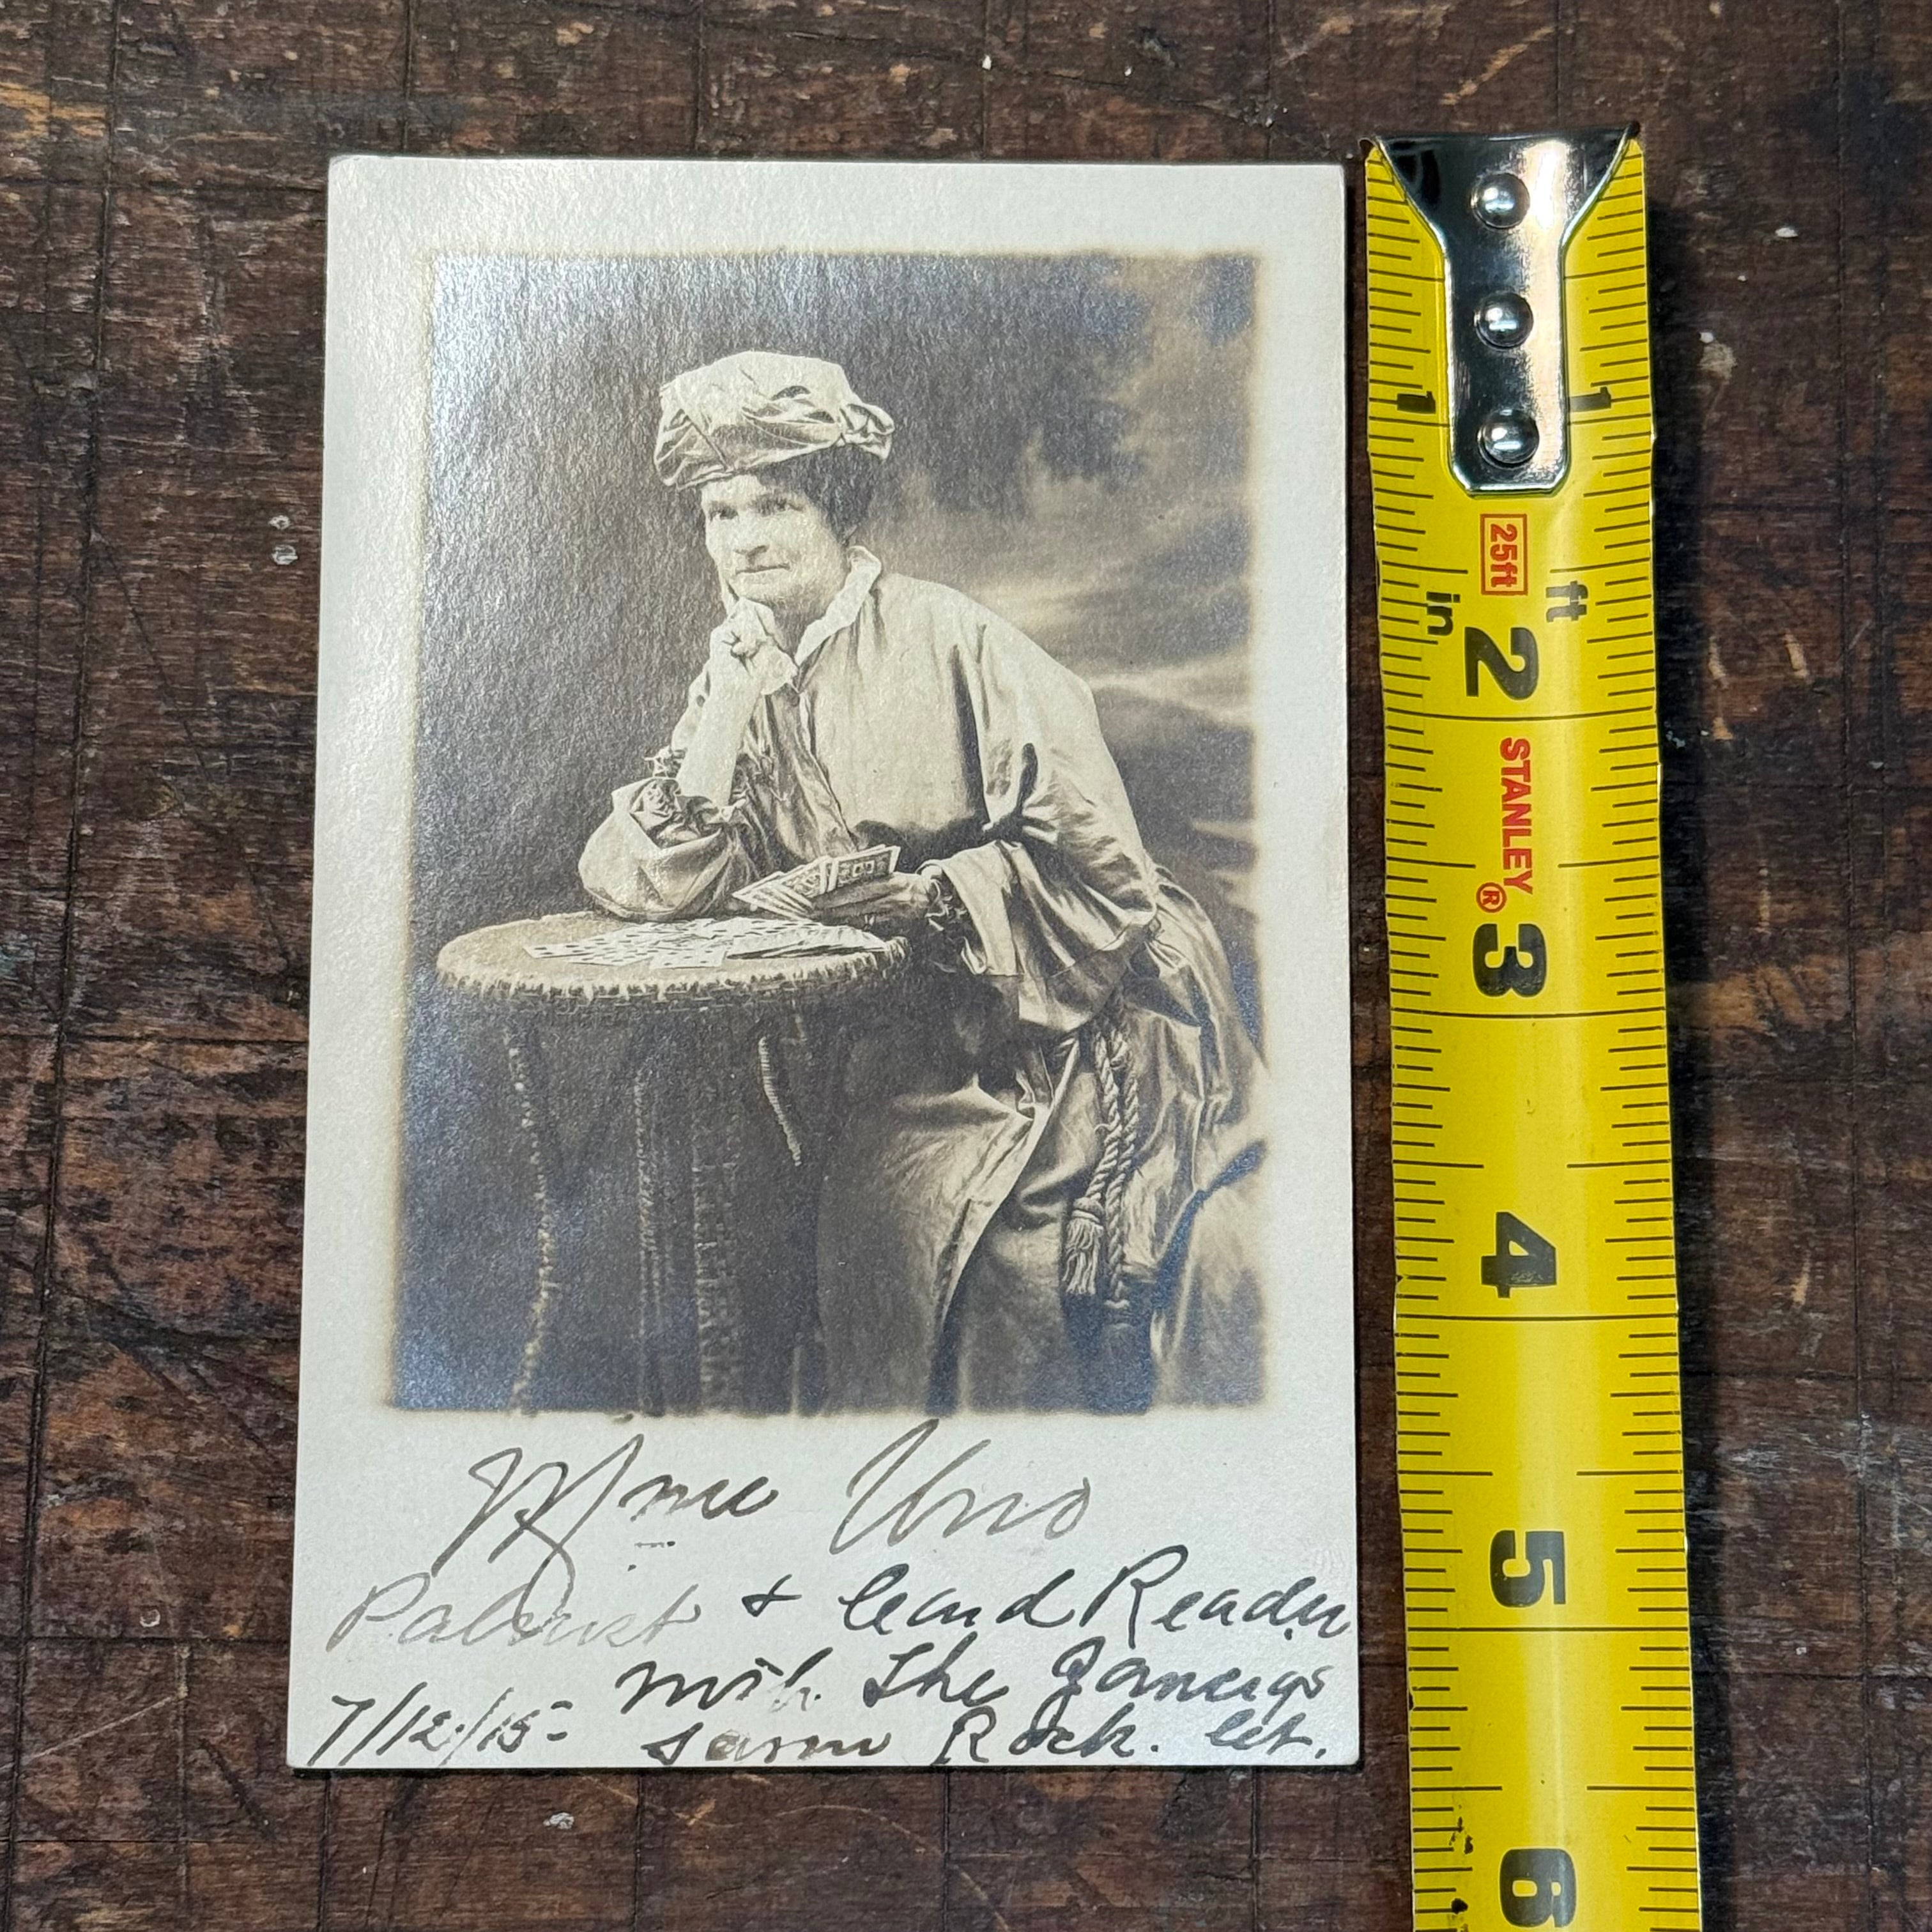 Mme Uno
Palmist & Card Reader
with The
7/12/15- Rock. Ct.
1 1
25ft
in ft
2
STANLEY®
3
4
5
6